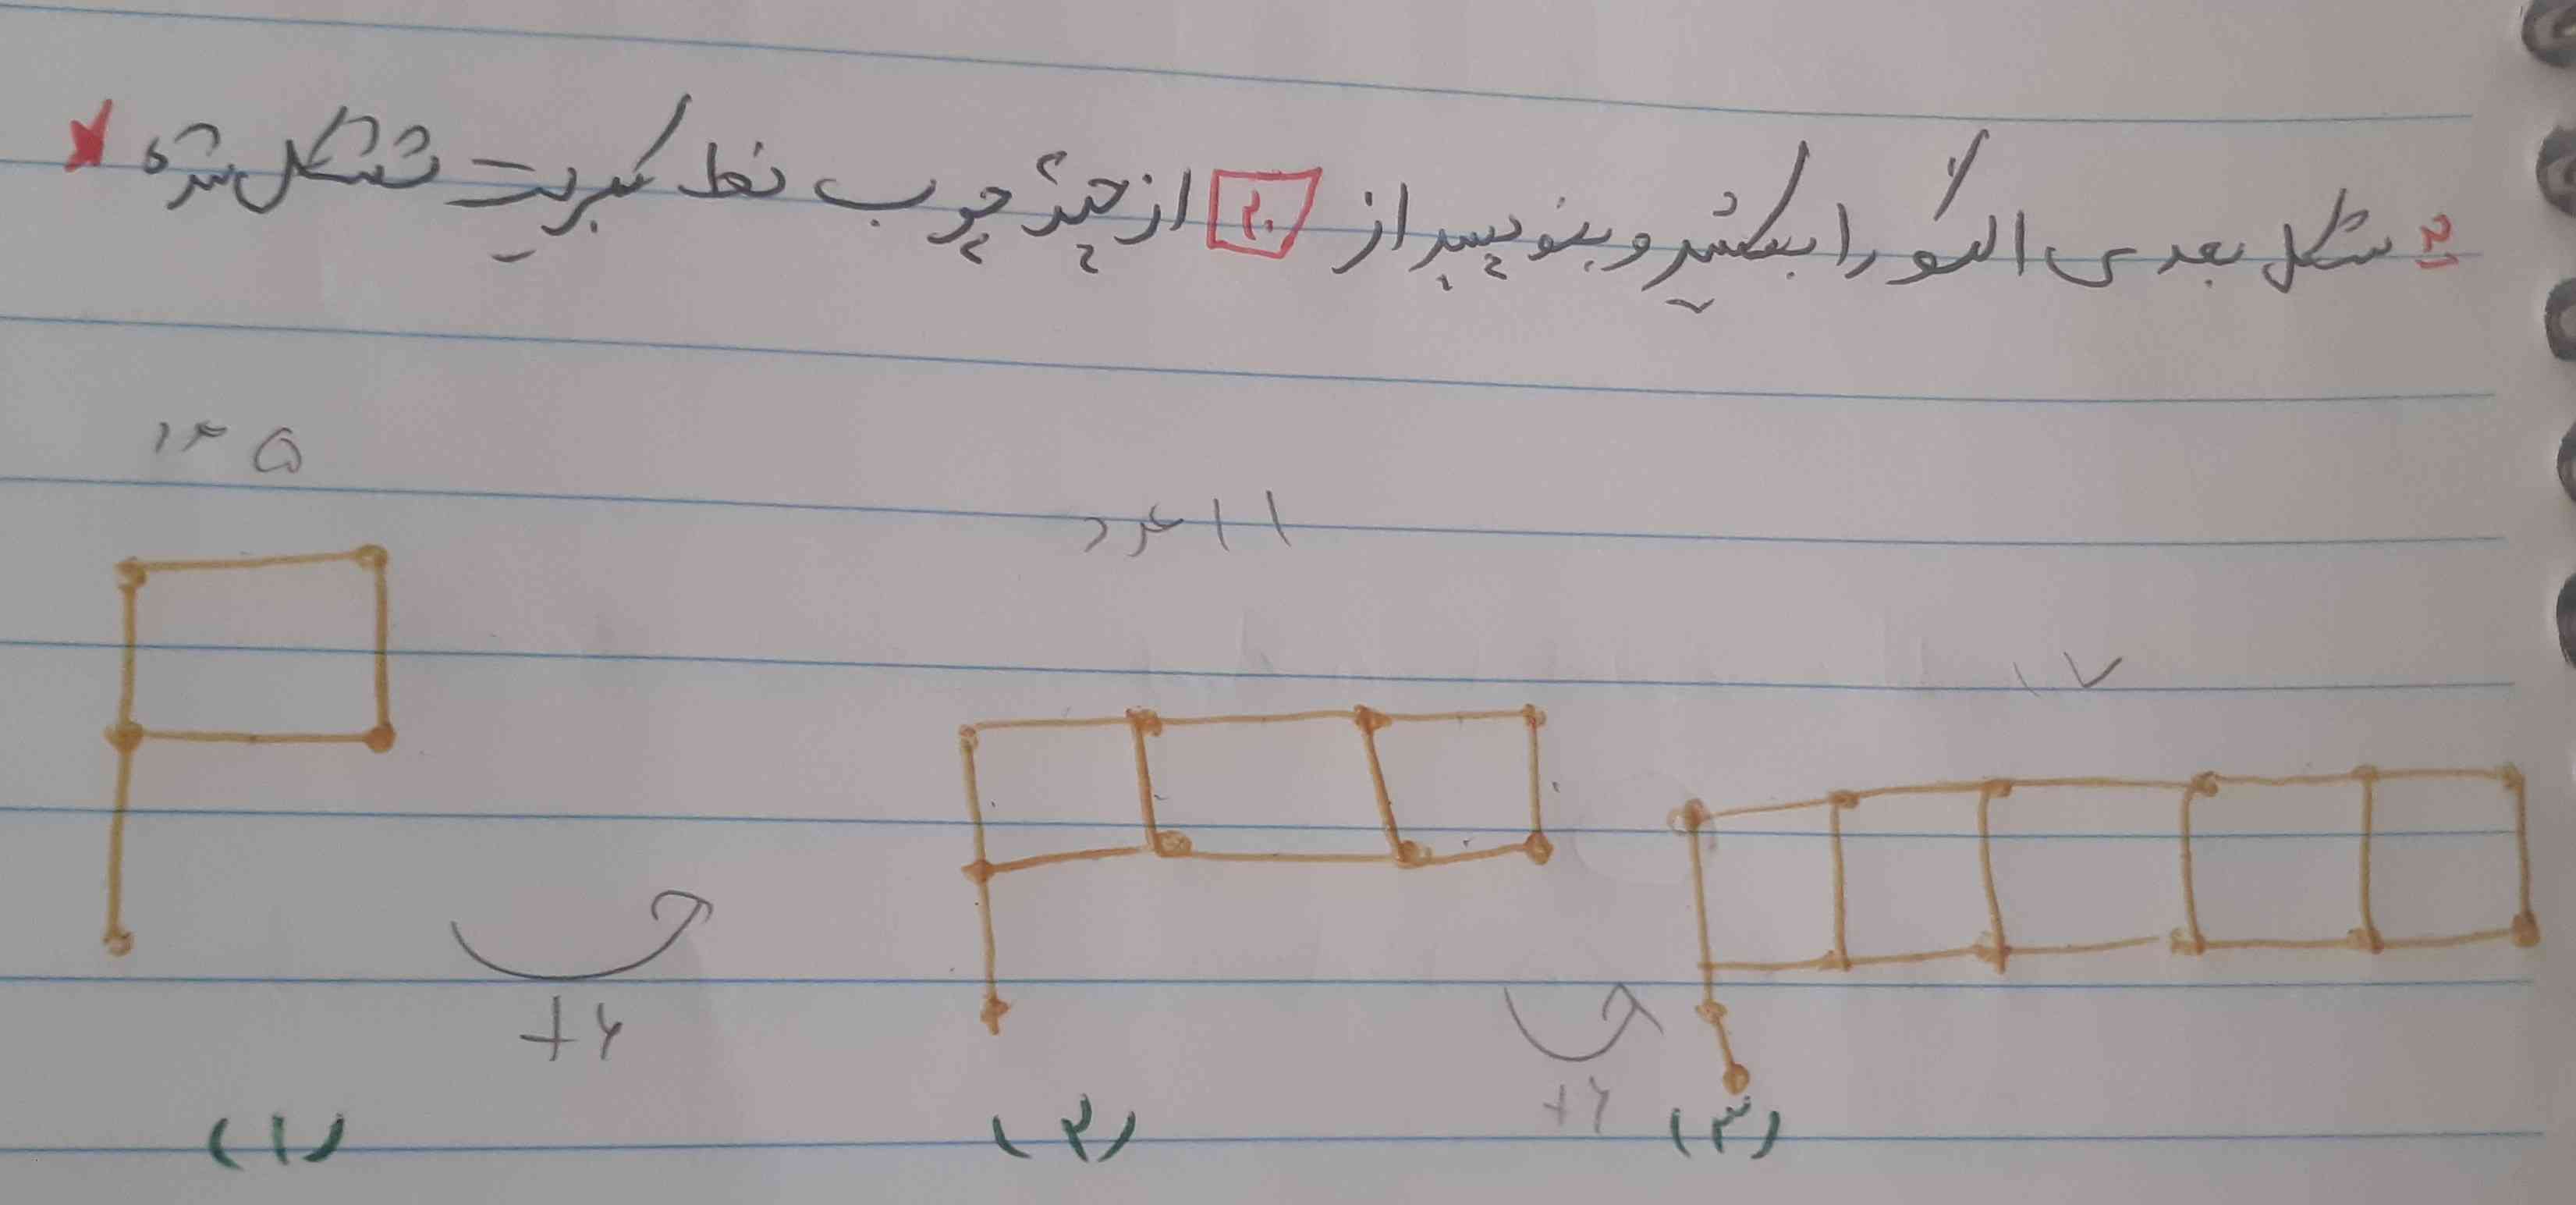 ۲= شکل بعدی الگو را بکشید و بنویسید از ۲۰ از چند چوب خط کبریت تشکل شده
۵ عدد
۱۱ عدد
۱۷
+۶
+۶
(۱)
(۲)
(۳)